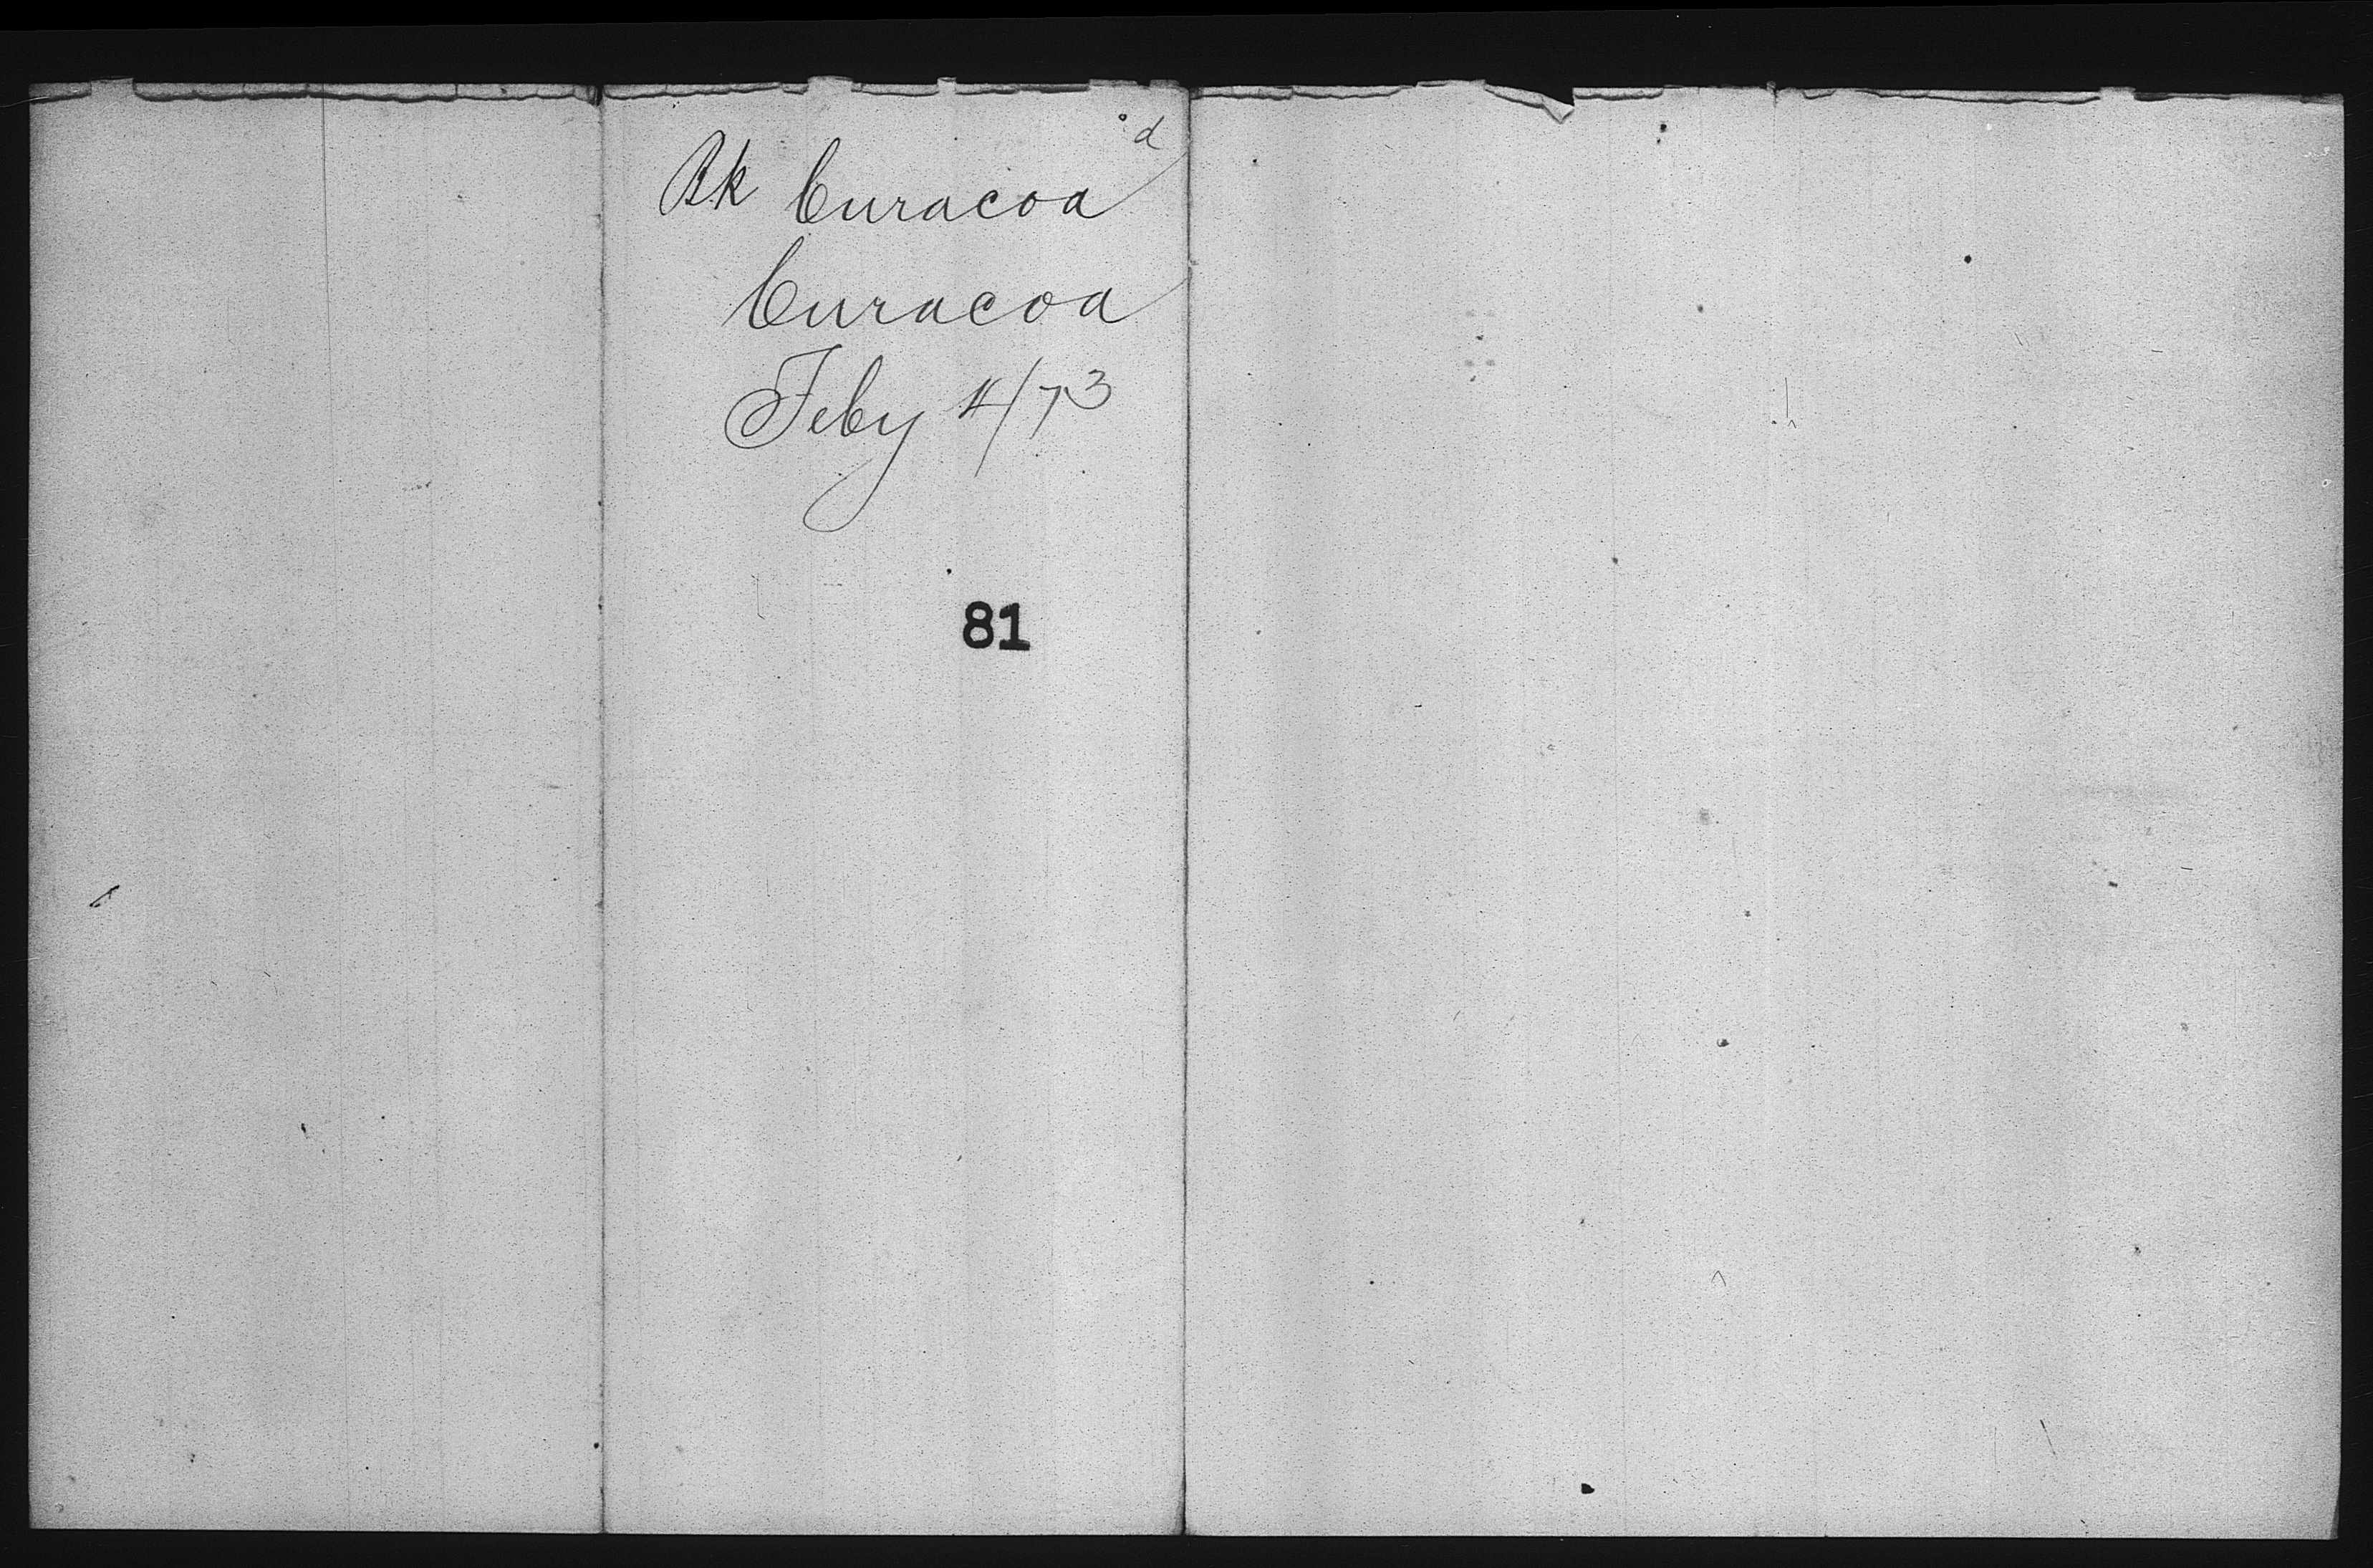 d
Bk Curacoa
Curacoa
Feby 4/73
81